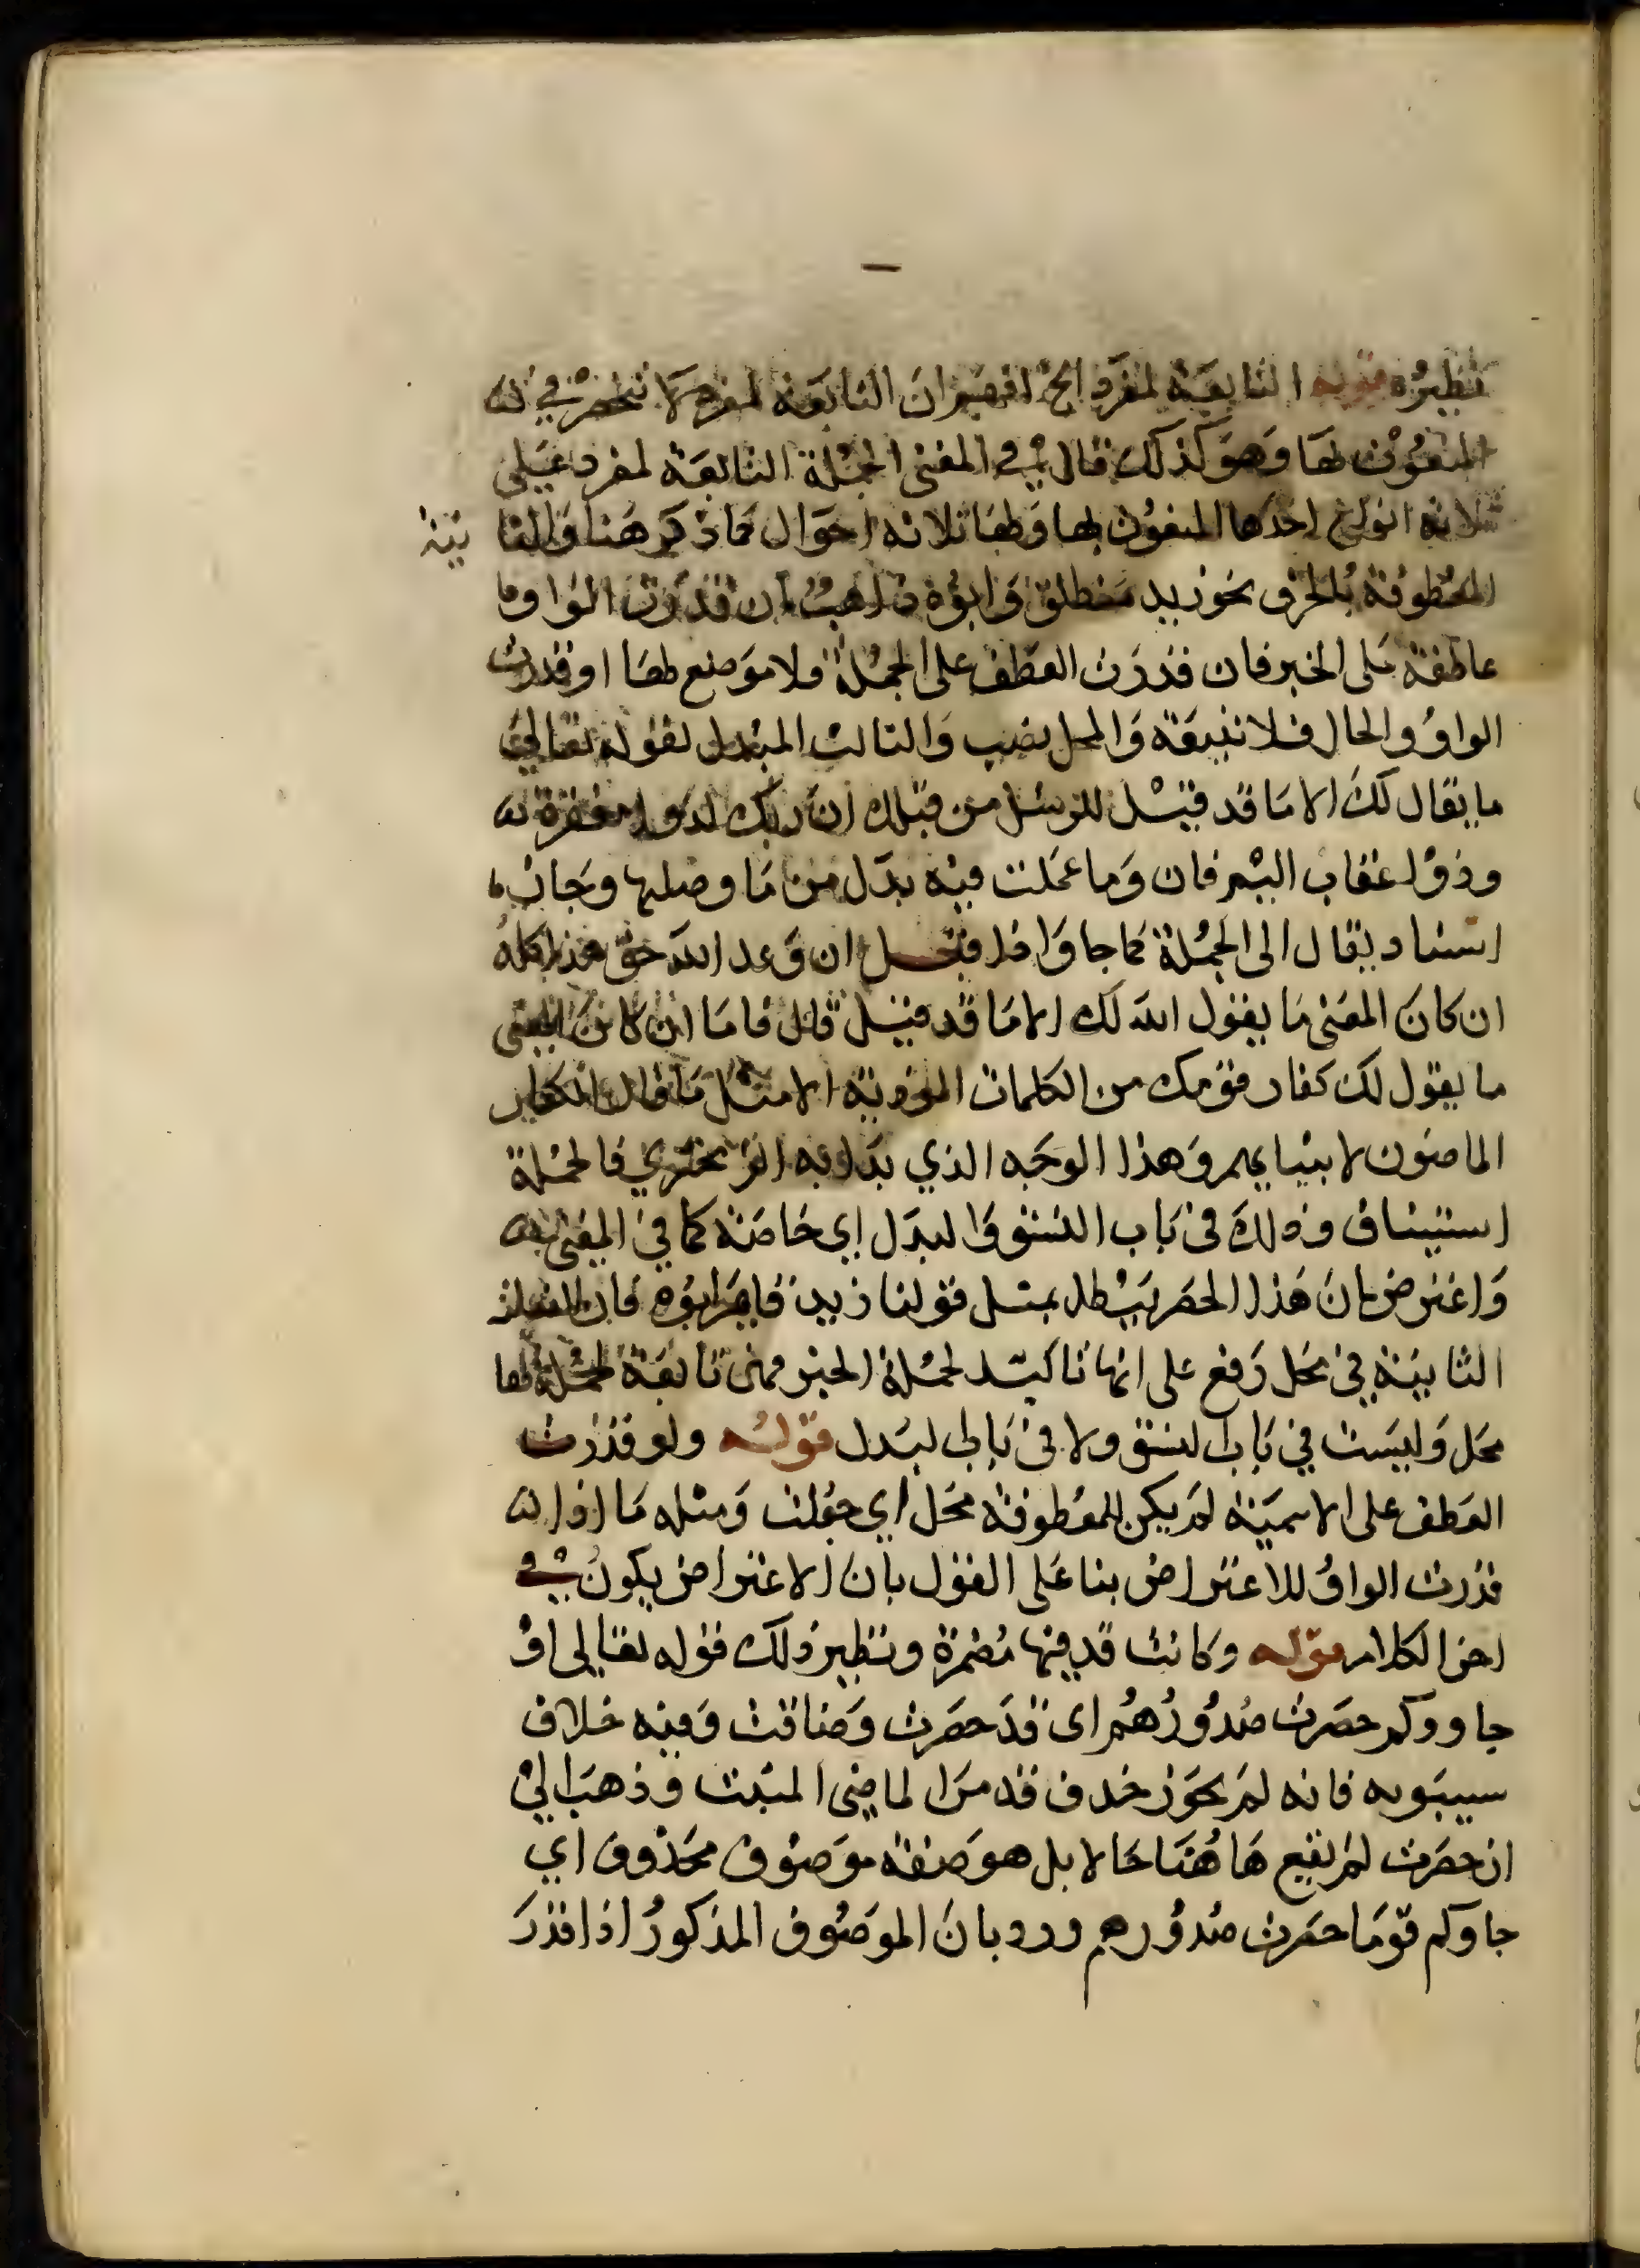 نظيره قوله التابعة لمفرد الخ افهم ان التابعة لمفرد لا تنحصر في
المنعوت لها وهو كذلك قال في المغني الجملة التابعة لمفرد على
ثلاثة انواع احدها المنعوت بها ولها ثلاثة احوال كما ذكر هنا والثا نية
المعطوفة بالحرف نحو زيد منطلق وابوه ذاهب ان قدرت الواو
عاطفة على الخبر فان قدرت العطف على الجملة فلا موضع لها او قدرت
الواو والحال فلا تبعية والمحل نصب والثالث المبدل لقوله تعالى
ما يقال لك الا ما قد قيل للرسل من قبلك ان ربك لذو مغفرة
وذوا عقاب اليم فان وما عملت فيه بدل من ما وصلتها وجاز
اسناد يقال الى الجملة كما جا واذا قيل ان وعد الله حق هذا كله
ان كان المعنى ما يقول الله لك الا ما قد قيل قال فاما ان كان المعنى
ما يقول لك كفار قومك من الكلمات المؤذية الا مثل ما قال الكفار
الماضون لانبيايهم وهذا الوجه الذي بدا به الزمخشري فالجملة
استيناف وذلك في باب النسق والبدل اي خاصة كما في المغني
واعترض بان هذا الحصر يبطل بمثل قولنا زيد قايم ابوه فان
الثانية في محل رفع على انها تاكيد لجملة الخبر فهى تابعة لجملة لها
محل وليست في باب النسق ولا في باب البدل قوله ولو قدرت
العطف على الاسمية لم يكن للمعطوفة محل اي جعلت ومثله ما اذا
قدرت الواو للاعتراض بنا على القول بان الاعتراض يكون في
اخر الكلام قوله وكانت قد فيها مضمرة ونظير ذلك قوله تعالى او
جاووكم حصرت صدورهم اى قد حصرت وضاقت وفيه خلاف
سيبويه فانه لم يجوز حذف قد من الماضي المثبت وذهب الى
ان حصرت لم يقع هاهنا حالا بل هو صفة موصوف محذوف اي
جاوكم قوما حصرت صدورهم ورد بان الموصوف المذكور اذا قدر